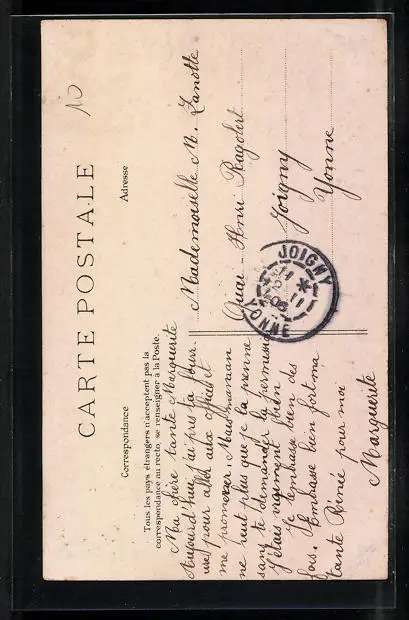 10
CARTE POSTALE
Correspondance
Adresse
Tous les pays étrangers n'acceptent pas la
correspondance au recto, se renseigner à la Poste.
Ma chère tante Marguerite
Aujourd'hui j'ai pris ta
pour aller aux et
me promener. Mais maman
ne veut plus que je la prenne
sans te demander la permission
J'étais vraiment bien
Je embrasse bien des
fois. Embrasse bien fort ma
tante Renée pour moi
Marguerite
Mademoiselle M. Zanotte
Quai Henri Ragobert
Joigny
Yonne
JOIGNY
YONNE